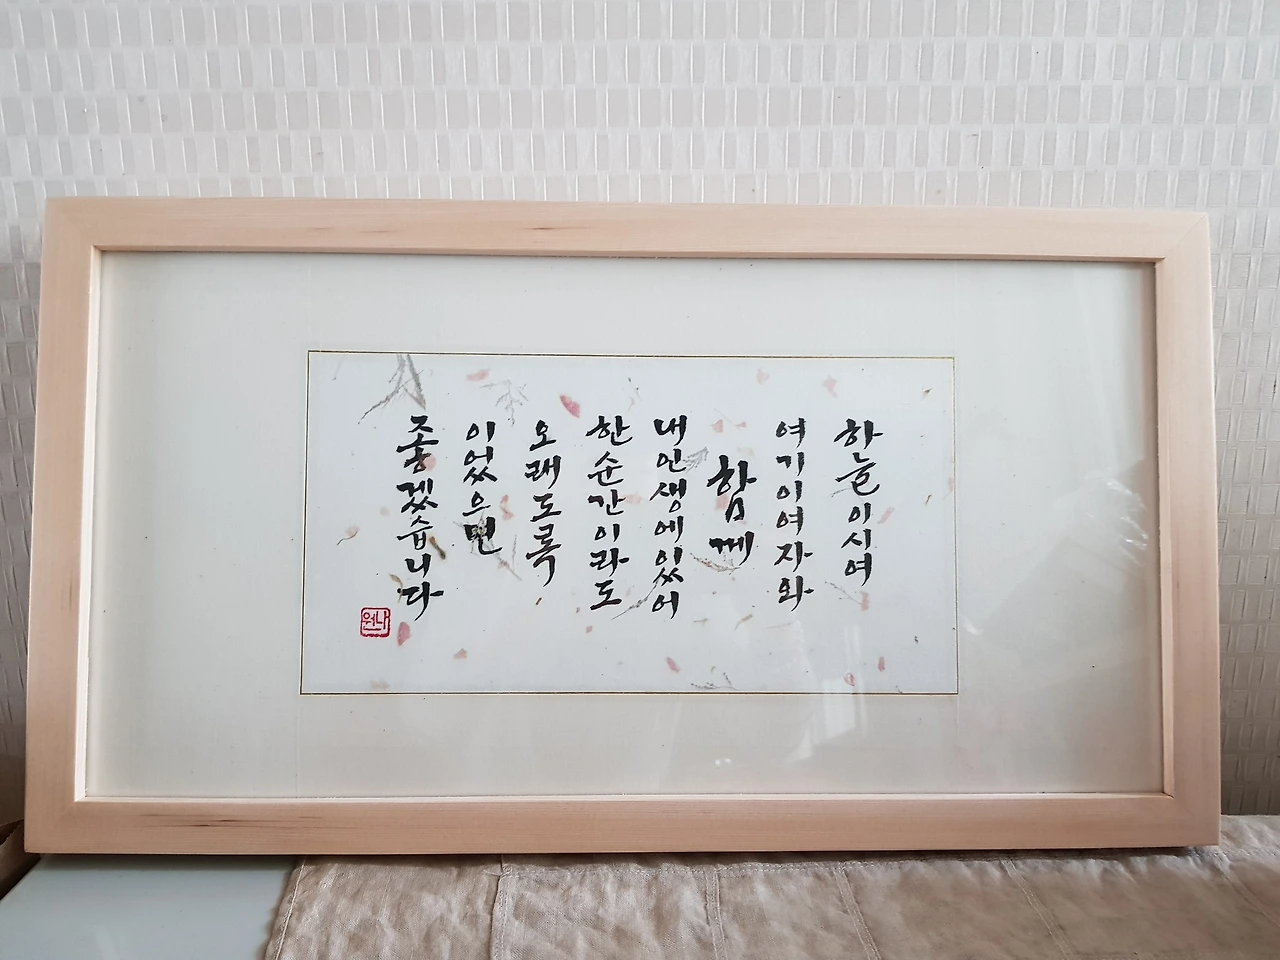 하늘이시여
여기이여자와
함께
내인생에있어
한순간이라도
오래도록
이었으면
좋겠습니다
원나